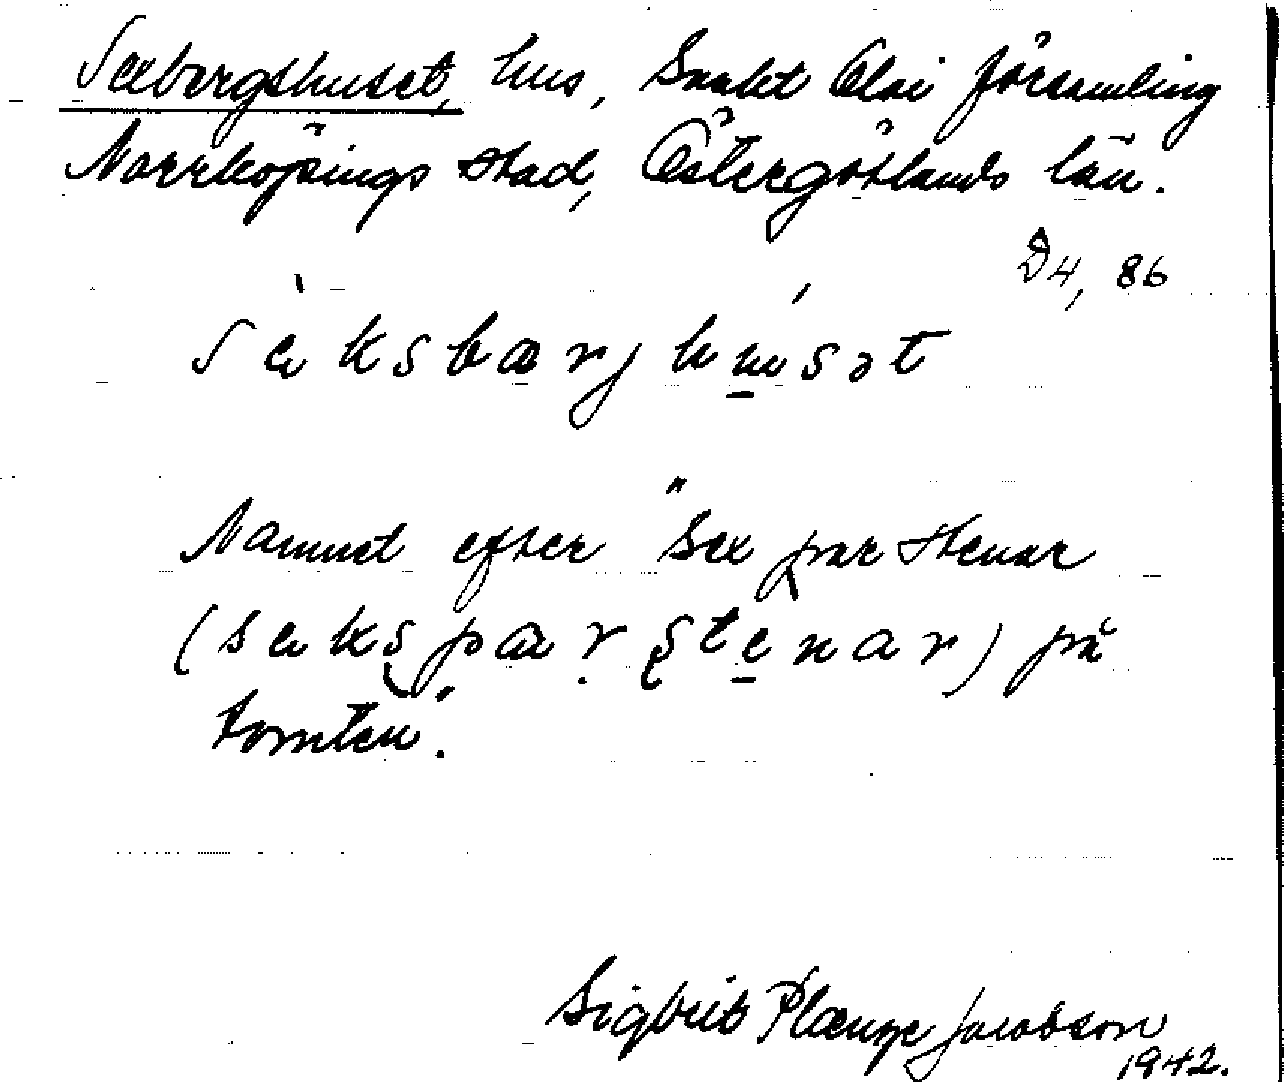 Sexbergshuset, hus, Sankt Olai församling
Norrköpings stad, Östergötlands län.
D4, 86
sæksbærjhusət
Namnet efter "Sex par stenar
(sæks pær stenar) på
tomten".
Sigbrit Plænge Jacobson
1942.